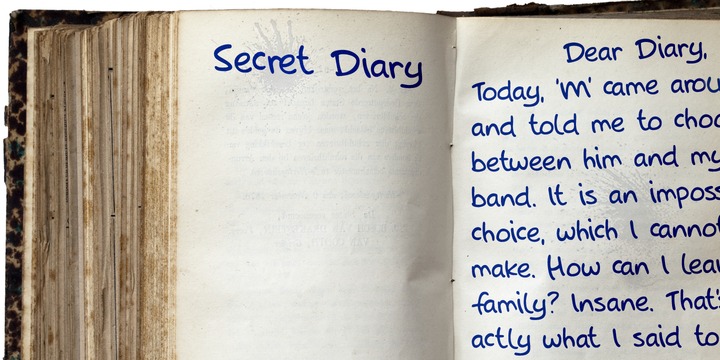 Secret Diary
Dear Diary,
Today, 'M' came arou
and told me to choo
between him and my
band. It is an imposs
choice, which I canno
make. How can I lea
family? Insane. That's
actly what I said to